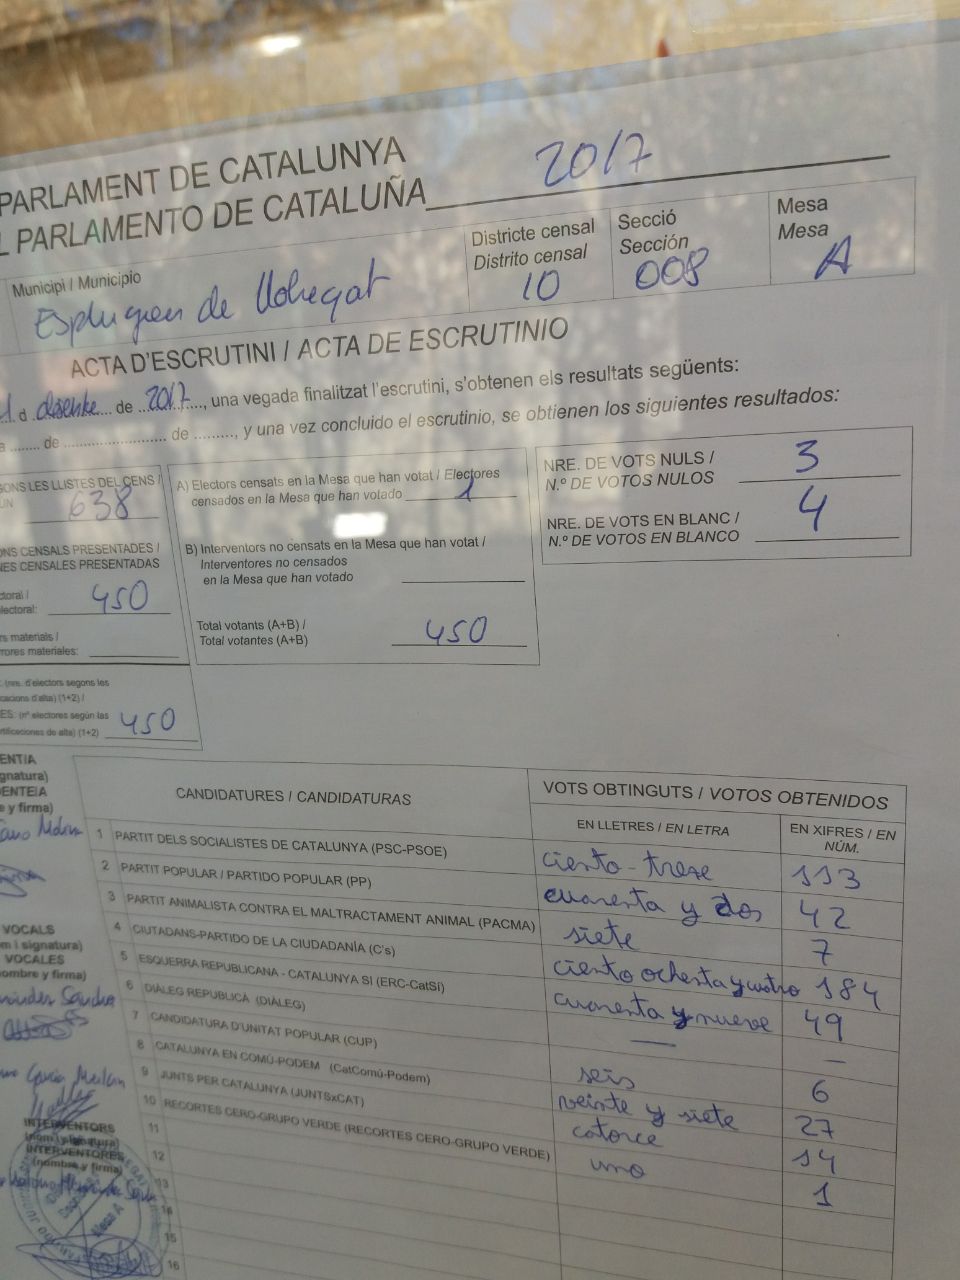 PARLAMENT DE CATALUNYA
L PARLAMENTO DE CATALUÑA 2017
Municipi / Municipio
Esplugues de Llobregat
Districte censal
Distrito censal
10
Secció
Sección
008
Mesa
Mesa
A
ACTA D'ESCRUTINI / ACTA DE ESCRUTINIO
1 d desembre de 2017, una vegada finalitzat l'escrutini, s'obtenen els resultats següents:
a ........ de ........................ de ........., y una vez concluido el escrutinio, se obtienen los siguientes resultados:
GONS LES LLISTES DEL CENS /
638
ONS CENSALS PRESENTADES /
NES CENSALES PRESENTADAS
ctoral /
lectoral: 450
rs materials /
rrores materiales:
(nre. d'electors segons les
cacions d'alta) (1+2) /
ES: (nº electores según las
rtificaciones de alta) (1+2) 450
A) Electors censats en la Mesa que han votat / Electores
censados en la Mesa que han votado 1
B) Interventors no censats en la Mesa que han votat /
Interventores no censados
en la Mesa que han votado
Total votants (A+B) /
Total votantes (A+B) 450
NRE. DE VOTS NULS /
N.º DE VOTOS NULOS 3
NRE. DE VOTS EN BLANC /
N.º DE VOTOS EN BLANCO 4
ENT/A
gnatura)
DENTE/A
e y firma)
VOCALS
m i signatura)
VOCALES
ombre y firma)
INTERVENTORS
(nom i signatura)
INTERVENTORES
(nombre y firma)
CANDIDATURES / CANDIDATURAS
VOTS OBTINGUTS / VOTOS OBTENIDOS
EN LLETRES / EN LETRA
EN XIFRES / EN NÚM.
1 PARTIT DELS SOCIALISTES DE CATALUNYA (PSC-PSOE) ciento - trese 113
2 PARTIT POPULAR / PARTIDO POPULAR (PP) cuarenta y dos 42
3 PARTIT ANIMALISTA CONTRA EL MALTRACTAMENT ANIMAL (PACMA) siete 7
4 CIUTADANS-PARTIDO DE LA CIUDADANÍA (C's) ciento ochenta y cuatro 184
5 ESQUERRA REPUBLICANA - CATALUNYA SÍ (ERC-CatSí) cuarenta y nueve 49
6 DIÀLEG REPUBLICÀ (DIÀLEG) — —
7 CANDIDATURA D'UNITAT POPULAR (CUP) seis 6
8 CATALUNYA EN COMÚ-PODEM (CatComú-Podem) veinte y siete 27
9 JUNTS PER CATALUNYA (JUNTSxCAT) catorce 14
10 RECORTES CERO-GRUPO VERDE (RECORTES CERO-GRUPO VERDE) uno 1
11
12
13
14
15
16